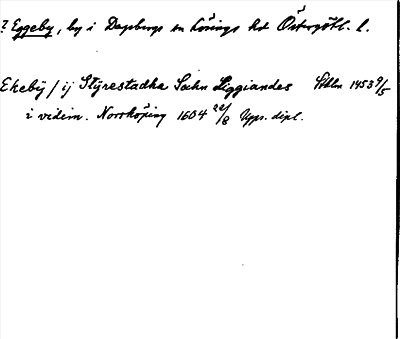 ? Eggeby, by i Dagsbergs sn Lösings hd Östergötl. l.
Ekebÿ / ij Stÿrestadha Sochn Liggiandes Sthlm 1453 9/5
i vidim. Norrköping 1604 22/8 Upps. dipl.